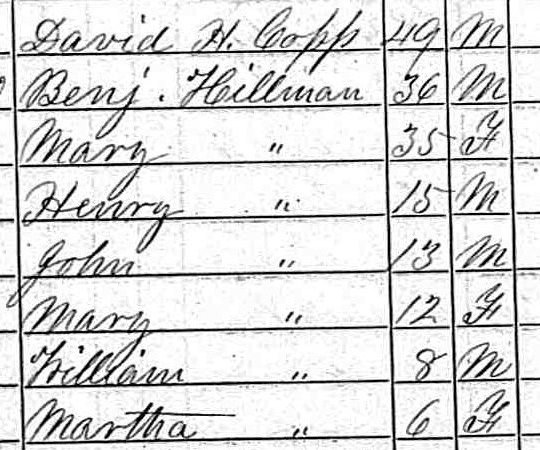 David H. Copp 49 M
Benj. Hillman 36 M
Mary " 35 F
Henry " 15 M
John " 13 M
Mary " 12 F
William " 8 M
Martha " 6 F